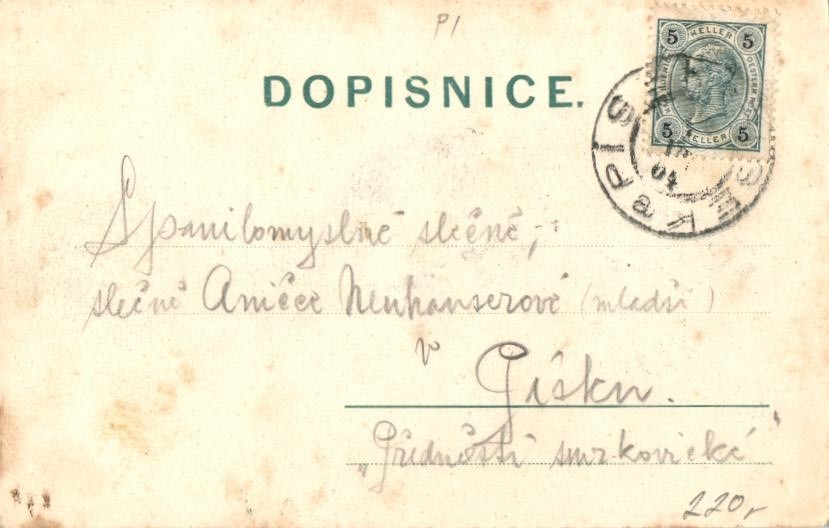 P1
DOPISNICE.
5 HELLER 5
5 HELLER 5
PISEK
04
Spanilomyslné slečně,
slečně Aničce Neuhauserové (mladší)
v
Písku.
"Předměstí smrkovické"
220,-